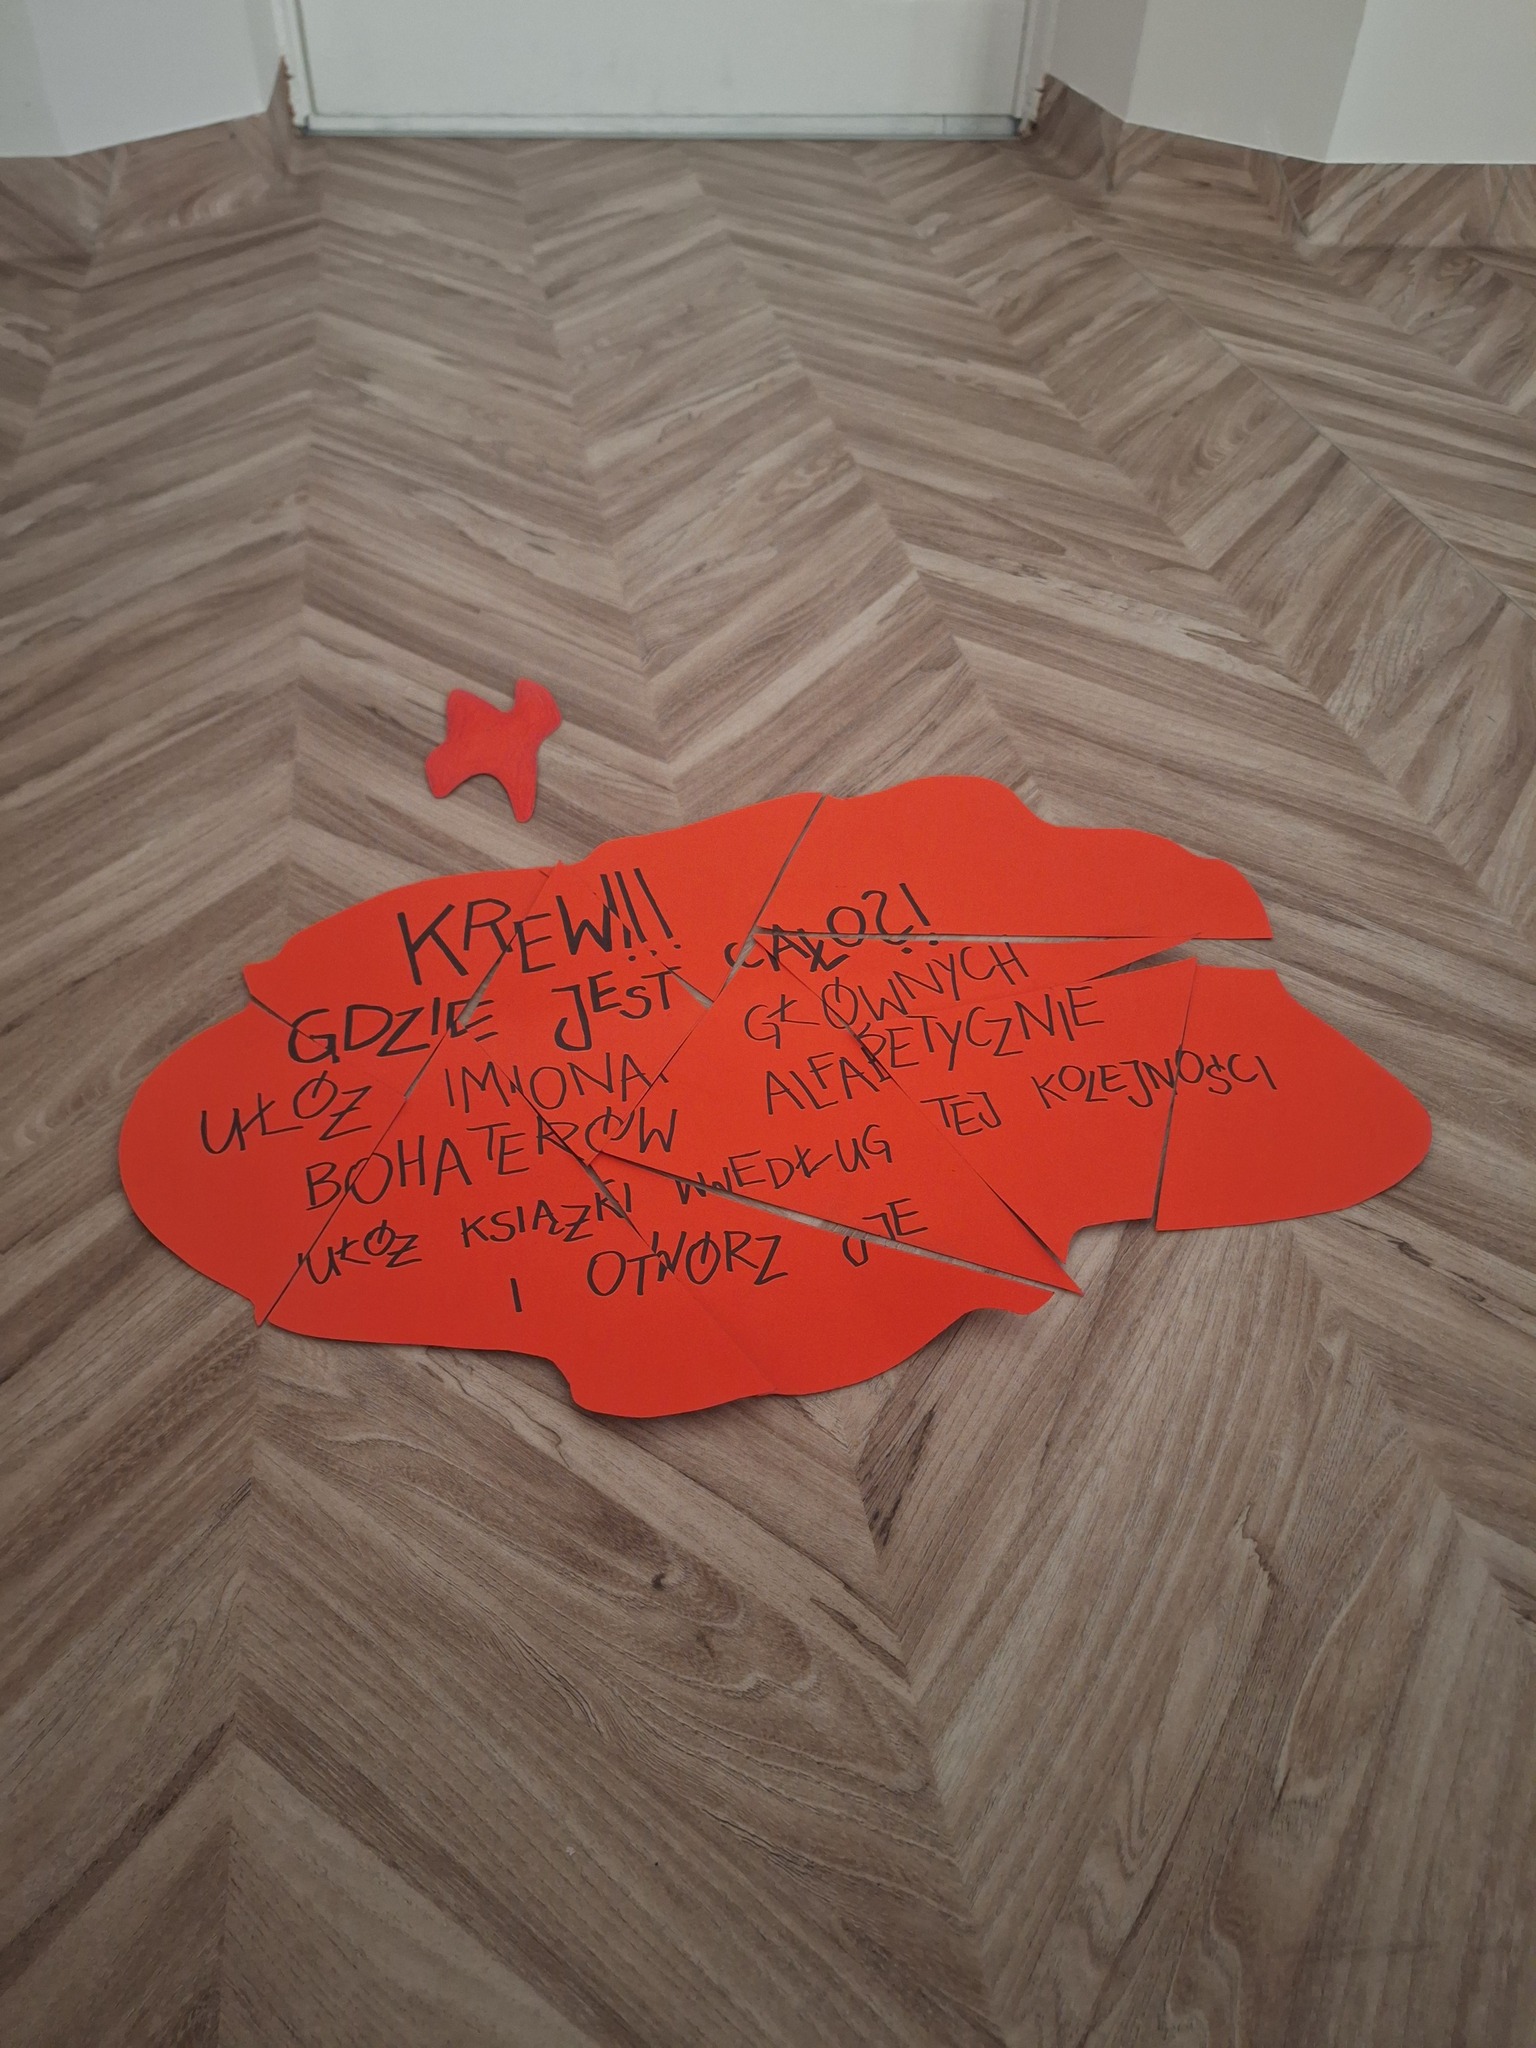 KREW!!!
GDZIE JEST CIAŁO?!
UŁÓŻ IMIONA GŁÓWNYCH
BOHATERÓW ALFABETYCZNIE
UŁÓŻ KSIĄŻKI WWEDŁUG TEJ KOLEJNOŚCI
I OTWÓRZ JE